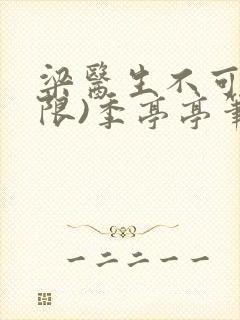 梁醫生不可
限)季亭亭筆
一二二一一